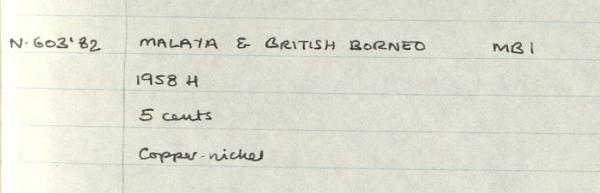 N.603'82 MALAYA & BRITISH BORNEO MB1
1958 H
5 cents
Copper-nickel